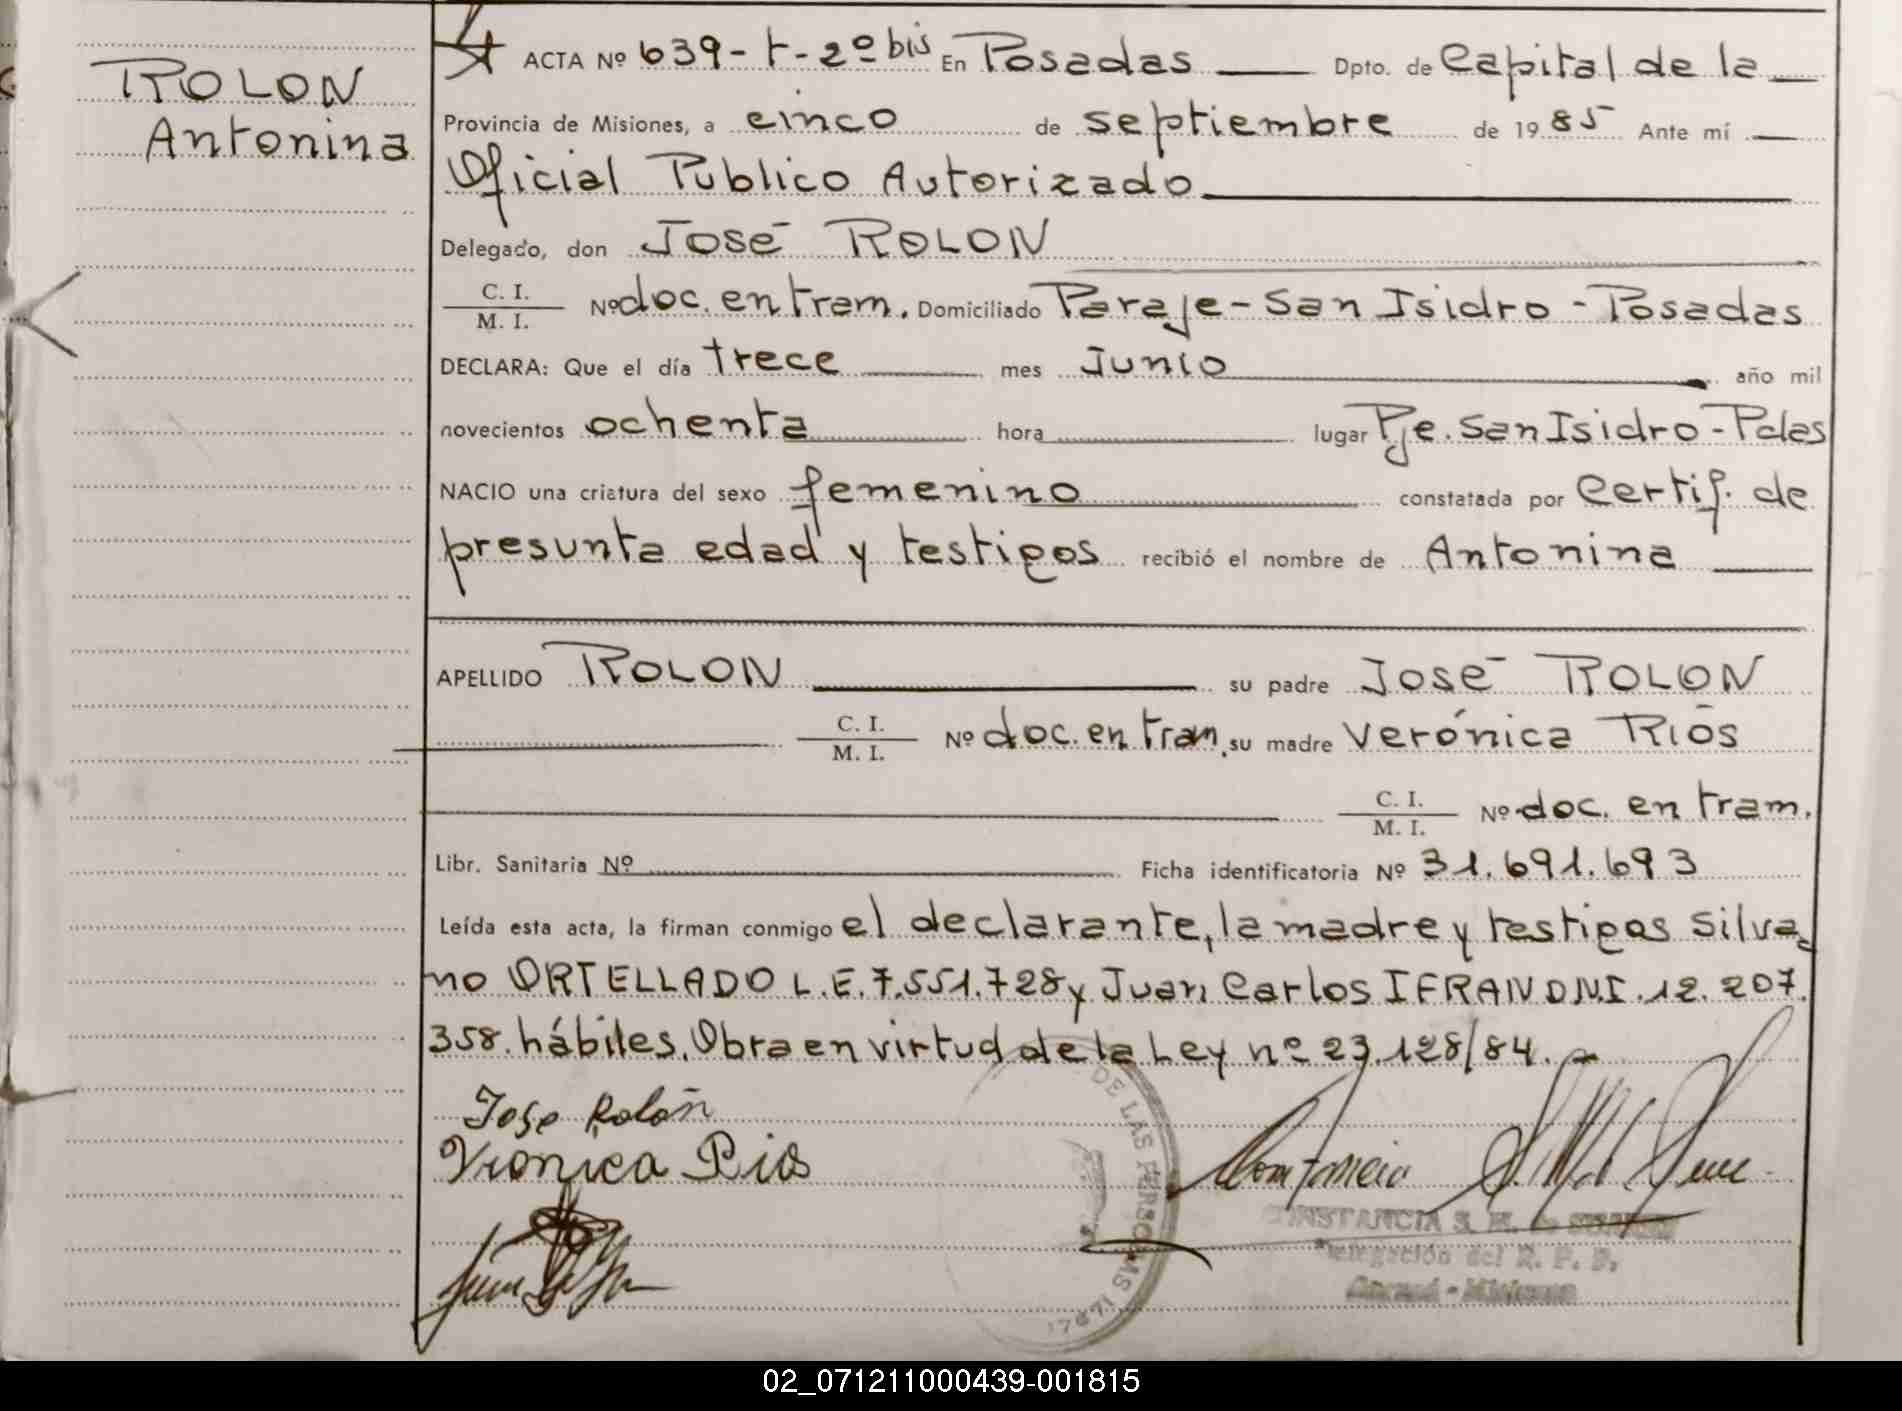 ROLON
Antonina
ACTA Nº 639-t-2º bis En Posadas Dpto. de Capital de la
Provincia de Misiones, a cinco de septiembre de 1985 Ante mí
Oficial Publico Autorizado
Delegado, don José ROLON
C. I.
M. I.
Nº doc. en tram. Domiciliado Paraje-San Isidro-Posadas
DECLARA: Que el día trece mes Junio año mil
novecientos ochenta hora lugar Pje. San Isidro-Pdas
NACIO una criatura del sexo femenino constatada por Certif. de
presunta edad y testigos recibió el nombre de Antonina
APELLIDO ROLON su padre José ROLON
C. I.
M. I.
Nº doc. en tram. su madre Verónica Ríos
C. I.
M. I.
Nº doc. en tram.
Libr. Sanitaria Nº Ficha identificatoria Nº 31.691.693
Leída esta acta, la firman conmigo el declarante, la madre y testigos Silva
no ORTELLADO L.E. 7.551.728 y Juan Carlos IFRAN D.N.I. 12.207.
358. hábiles. Obra en virtud de la Ley nº 23.128/84.
Jose Rolon
Vronica Rios
DE LAS PERSONAS
CONSTANCIA S. M. de
Delegación del R. P. P.
- Misiones
02_071211000439-001815